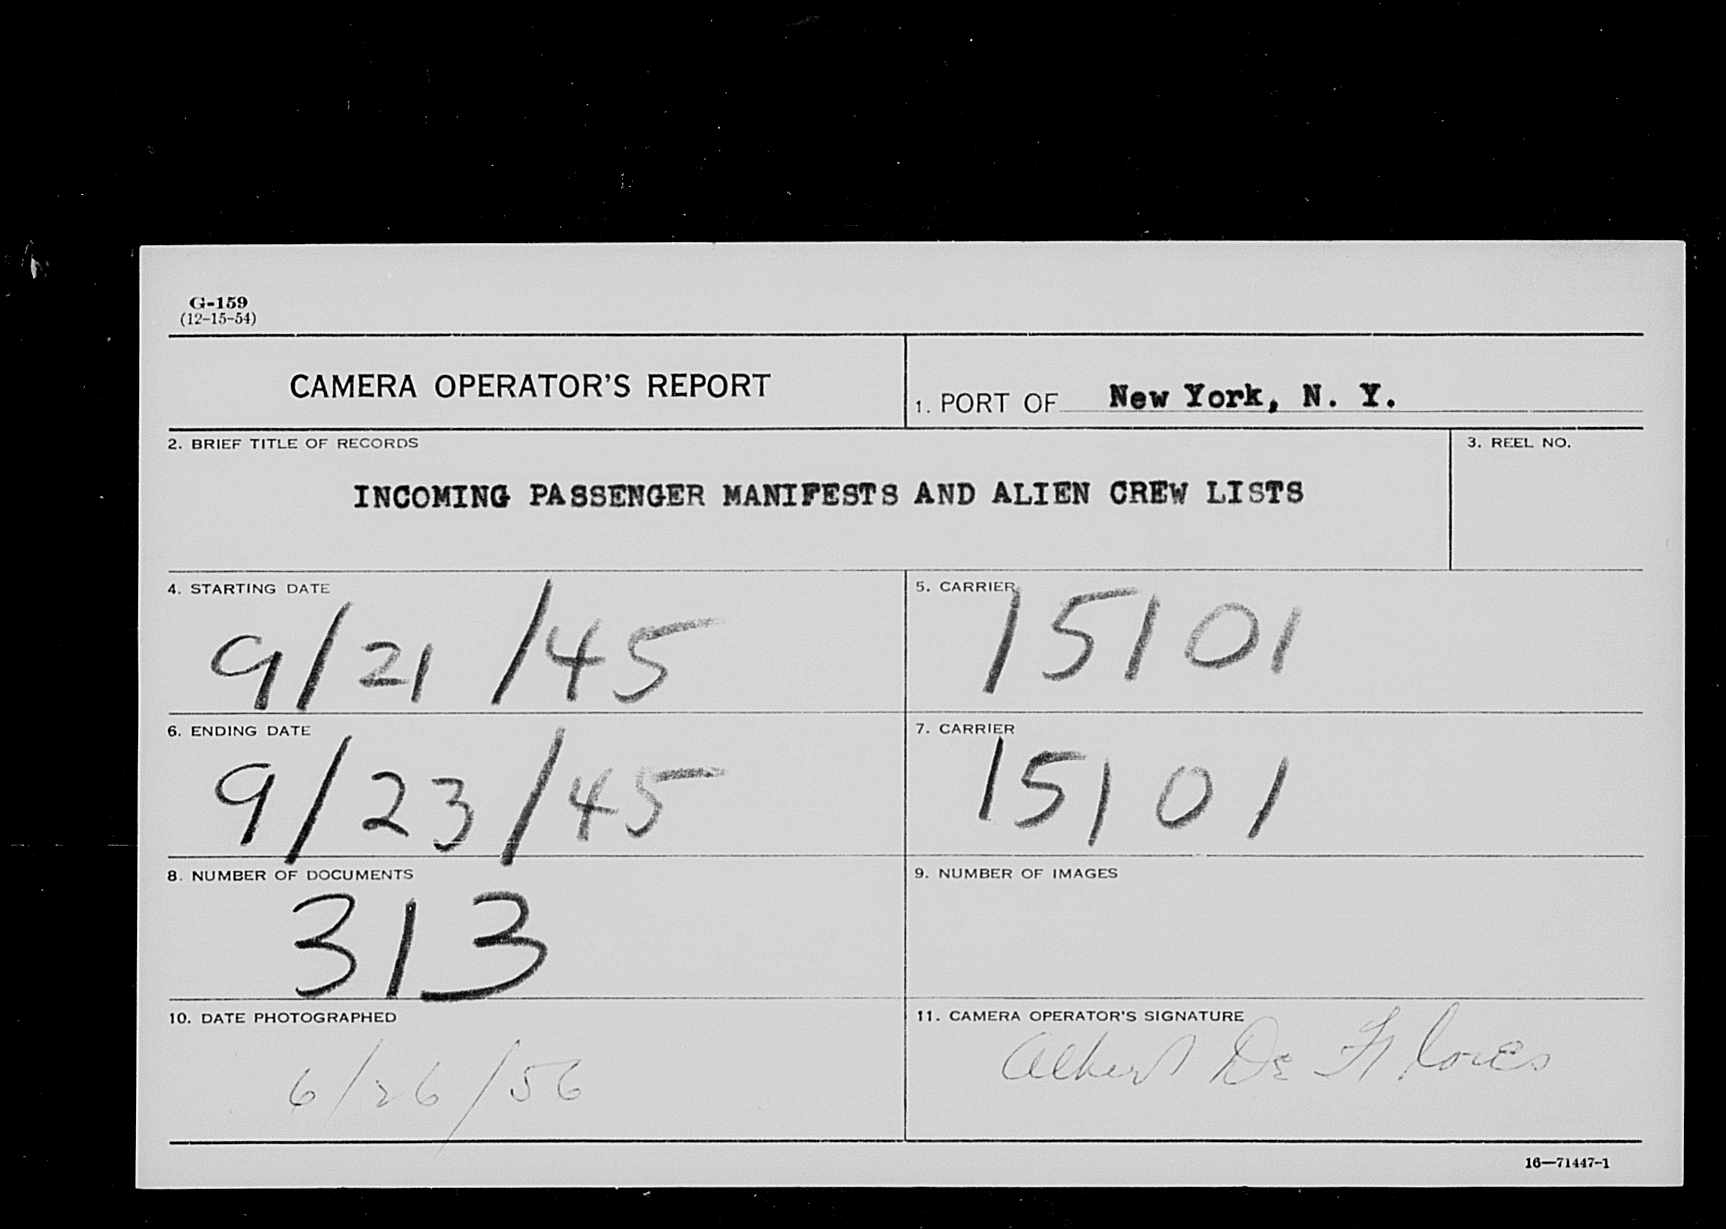 G-159
(12-15-54)
CAMERA OPERATOR'S REPORT
1. PORT OF New York, N. Y.
2. BRIEF TITLE OF RECORDS
3. REEL NO.
INCOMING PASSENGER MANIFESTS AND ALIEN CREW LISTS
4. STARTING DATE
9/21/45
5. CARRIER
15101
6. ENDING DATE
9/23/45
7. CARRIER
15101
8. NUMBER OF DOCUMENTS
313
9. NUMBER OF IMAGES
10. DATE PHOTOGRAPHED
6/26/56
11. CAMERA OPERATOR'S SIGNATURE
Albert De Flores
16—71447-1